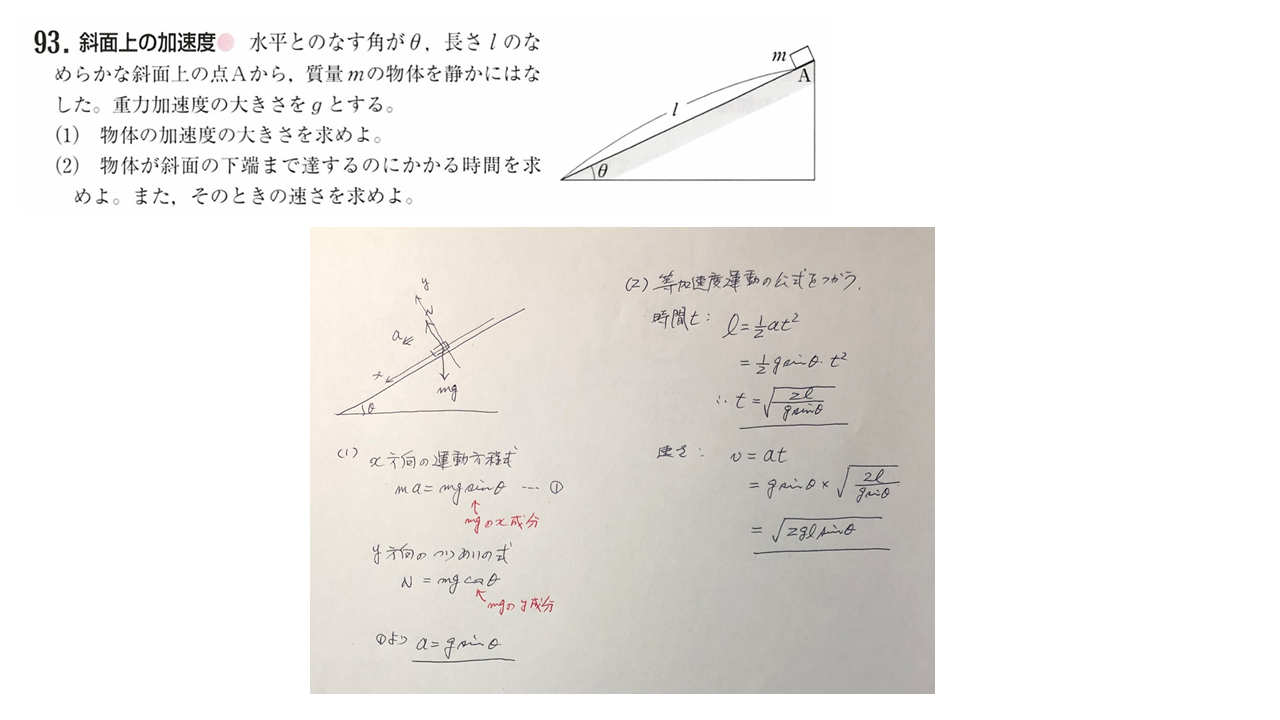 93. 斜面上の加速度 水平とのなす角がθ，長さlのな
めらかな斜面上の点Aから，質量mの物体を静かにはな
した。重力加速度の大きさをgとする。
(1) 物体の加速度の大きさを求めよ。
(2) 物体が斜面の下端まで達するのにかかる時間を求
めよ。また，そのときの速さを求めよ。
m
A
l
θ
y
N
a
x
mg
θ
(1) x方向の運動方程式
ma = mg sinθ ‥‥ ①
↑
mgのx成分
y方向のつりあいの式
N = mg cosθ
↖
mgのy成分
①より a = g sinθ
(2) 等加速度運動の公式をつかう.
時間t: l = 1/2 at²
= 1/2 g sinθ・t²
∴ t = √(2l/(g sinθ))
速さ: v = at
= g sinθ × √(2l/(g sinθ))
= √(2gl sinθ)